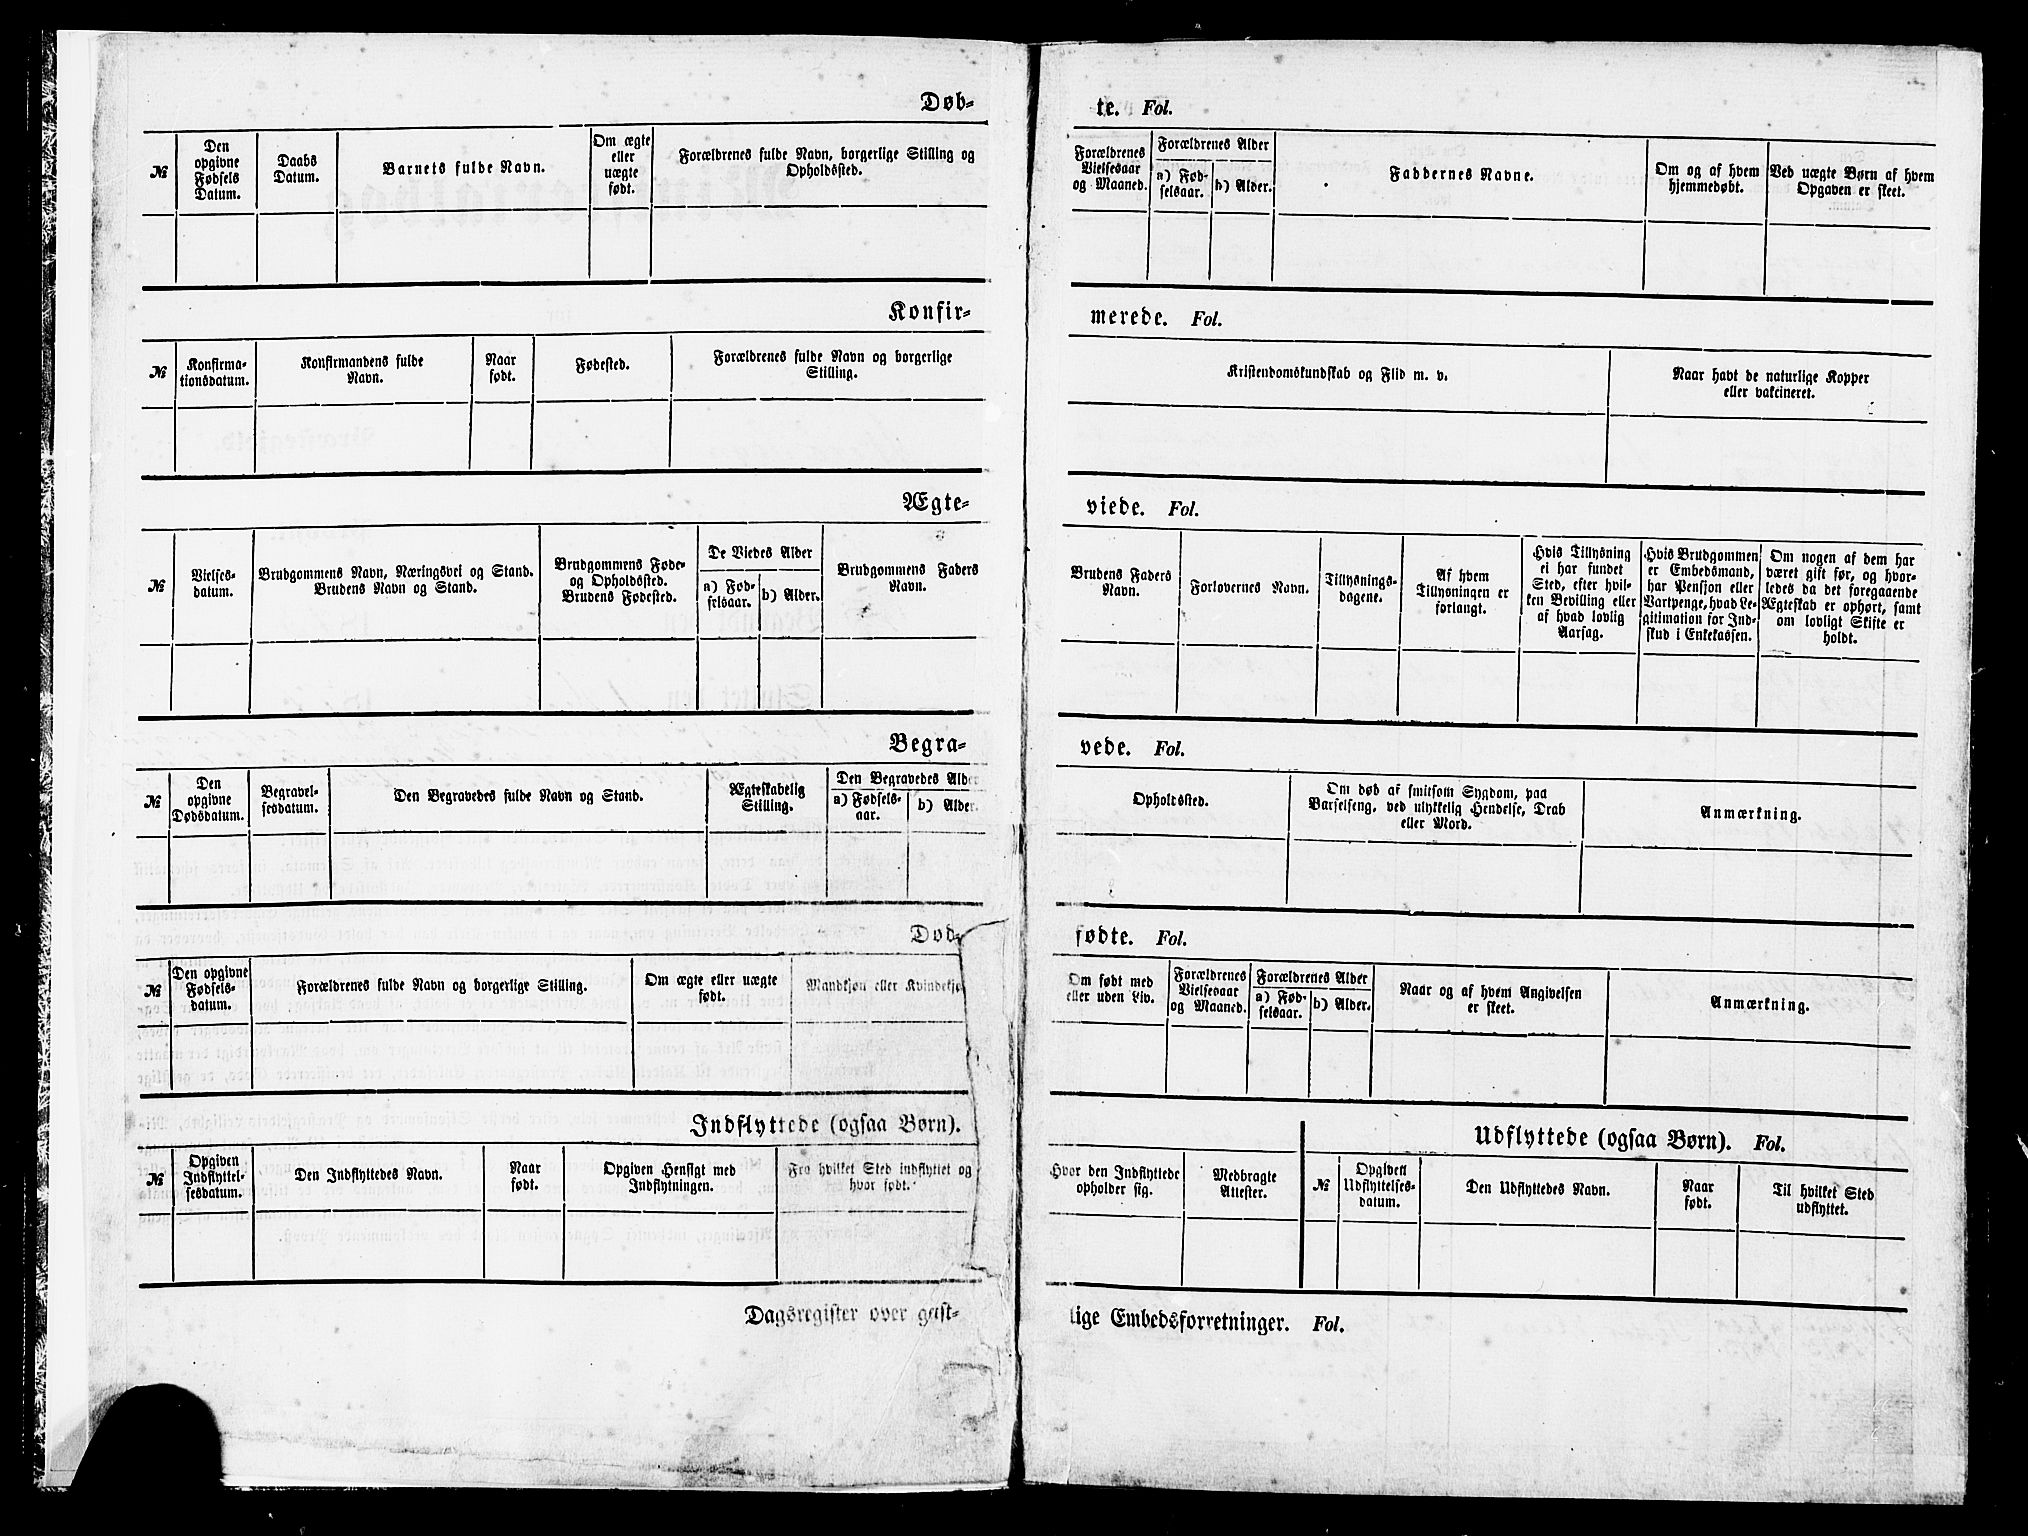 Døb-
№
Den
opgivne
Fødsels
Datum.
Daabs
Datum.
Barnets fulde Navn.
Om ægte
eller
uægte
født.
Forældrenes fulde Navn, borgerlige Stilling og
Opholdssted.
Konfir-
№
Konfirma-
tionsdatum.
Konfirmandens fulde
Navn.
Naar
født.
Fødested.
Forældrenes fulde Navn og borgerlige
Stilling.
Ægte-
№
Vielses-
datum.
Brudgommens Navn, Næringsvei og Stand.
Brudens Navn og Stand.
Brudgommens Føde-
og Opholdssted.
Brudens Fødested.
De Viedes Alder
a) Fød-
selsaar.
b) Alder.
Brudgommens Faders
Navn.
Begra-
№
Den
opgivne
Dødsdatum.
Begravel-
sesdatum.
Den Begravedes fulde Navn og Stand.
Ægteskabelig
Stilling.
Den Begravedes Alder
a) Fødsels-
aar.
b) Alder.
Død-
№
Den opgivne
Fødsels-
datum.
Forældrenes fulde Navn og borgerlige Stilling.
Om ægte eller uægte
født.
Mandkjøn eller Kvindekjø
Indflyttede (ogsaa Børn).
№
Opgiven
Indflyttel-
sesdatum.
Den Indflyttedes Navn.
Naar
født.
Opgiven Hensigt med
Indflytningen.
Fra hvilket Sted indflyttet og
hvor født.
Dagsregister over geist-
te. Fol.
Forældrenes
Vielsesaar
og Maaned.
Forældrenes Alder
a) Fød-
selsaar.
b) Alder.
Faddernes Navne.
Om og af hvem
hjemmedøbt.
Ved uægte Børn af hvem
Opgaven er skeet.
merede. Fol.
Kristendomskundskab og Flid m. v.
Naar havt de naturlige Kopper
eller vakcineret.
viede. Fol.
Brudens Faders
Navn.
Forlovernes Navn.
Tillysnings-
dagene.
Af hvem
Tillysningen er
forlangt.
Hvis Tillysning
ei har fundet
Sted, efter hvil-
ken Bevilling eller
af hvad lovlig
Aarsag.
Hvis Brudgommen
er Embedsmand,
har Pension eller
Vartpenge, hvad Le-
gitimation for Ind-
skud i Enkekassen.
Om nogen af dem har
været gift før, og hvor-
ledes da det foregaaende
Ægteskab er ophørt, samt
om lovligt Skifte er
holdt.
vede. Fol.
Opholdssted.
Om død af smitsom Sygdom, paa
Barselseng, ved ulykkelig Hendelse, Drab
eller Mord.
Anmærkning.
fødte. Fol.
Om født med
eller uden Liv.
Forældrenes
Vielsesaar
og Maaned.
Forældrenes Alder
a) Fød-
selsaar.
b) Alder.
Naar og af hvem Angivelsen
er skeet.
Anmærkning.
Udflyttede (ogsaa Børn). Fol.
Hvor den Indflyttede
opholder sig.
Medbragte
Attester.
№
Opgiven
Udflyttelses-
datum.
Den Udflyttedes Navn.
Naar
født.
Til hvilket Sted
udflyttet.
lige Embedsforretninger. Fol.